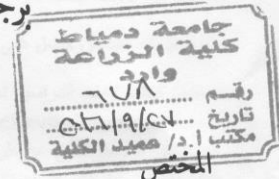 جامعة دمياط
كلية الزراعة
وارد
رقم ٦٧٨
تاريخ
مكتب أ.د/ عميد الكلية
المختص